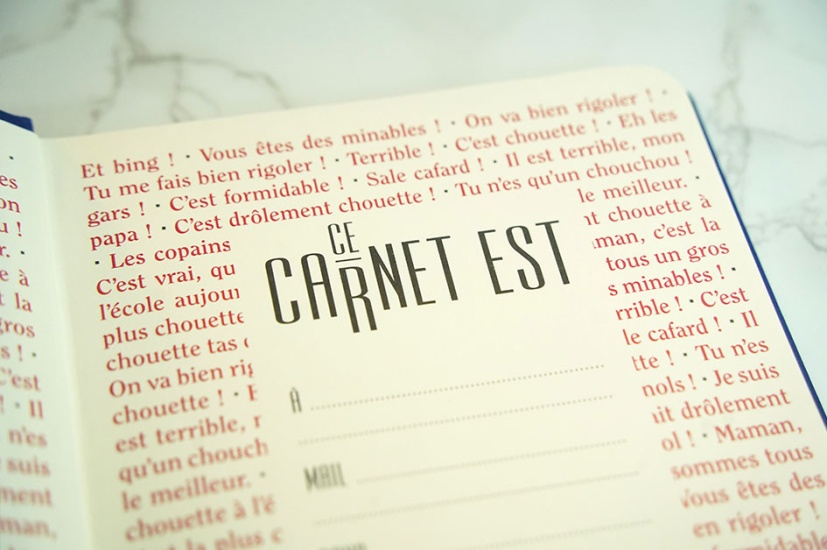 Et bing ! · Vous êtes des minables ! · On va bien rigoler ! ·
Tu me fais bien rigoler ! · Terrible ! · C'est chouette ! · Eh les
gars ! · C'est formidable ! · Sale cafard ! · Il est terrible, mon
papa ! · C'est drôlement chouette ! · Tu n'es qu'un chouchou !
· Les copains
C'est vrai, qu
l'école aujour
plus chouette
chouette tas
On va bien rig
chouette ! ·
est terrible,
qu'un chouch
le meilleur. ·
chouette à l'é
la plus c
CE
CARNET EST
À
MAIL
le meilleur. ·
nt chouette à
man, c'est la
tous un gros
s minables ! ·
rrible ! · C'est
le cafard ! · Il
tte ! · Tu n'es
nols ! · Je suis
it drôlement
ol ! · Maman,
sommes tous
Vous êtes des
en rigoler !
formidable
es
on
u !
r. ·
e à
t la
gros
s ! ·
C'est
! · Il
n'es
suis
ment
man,